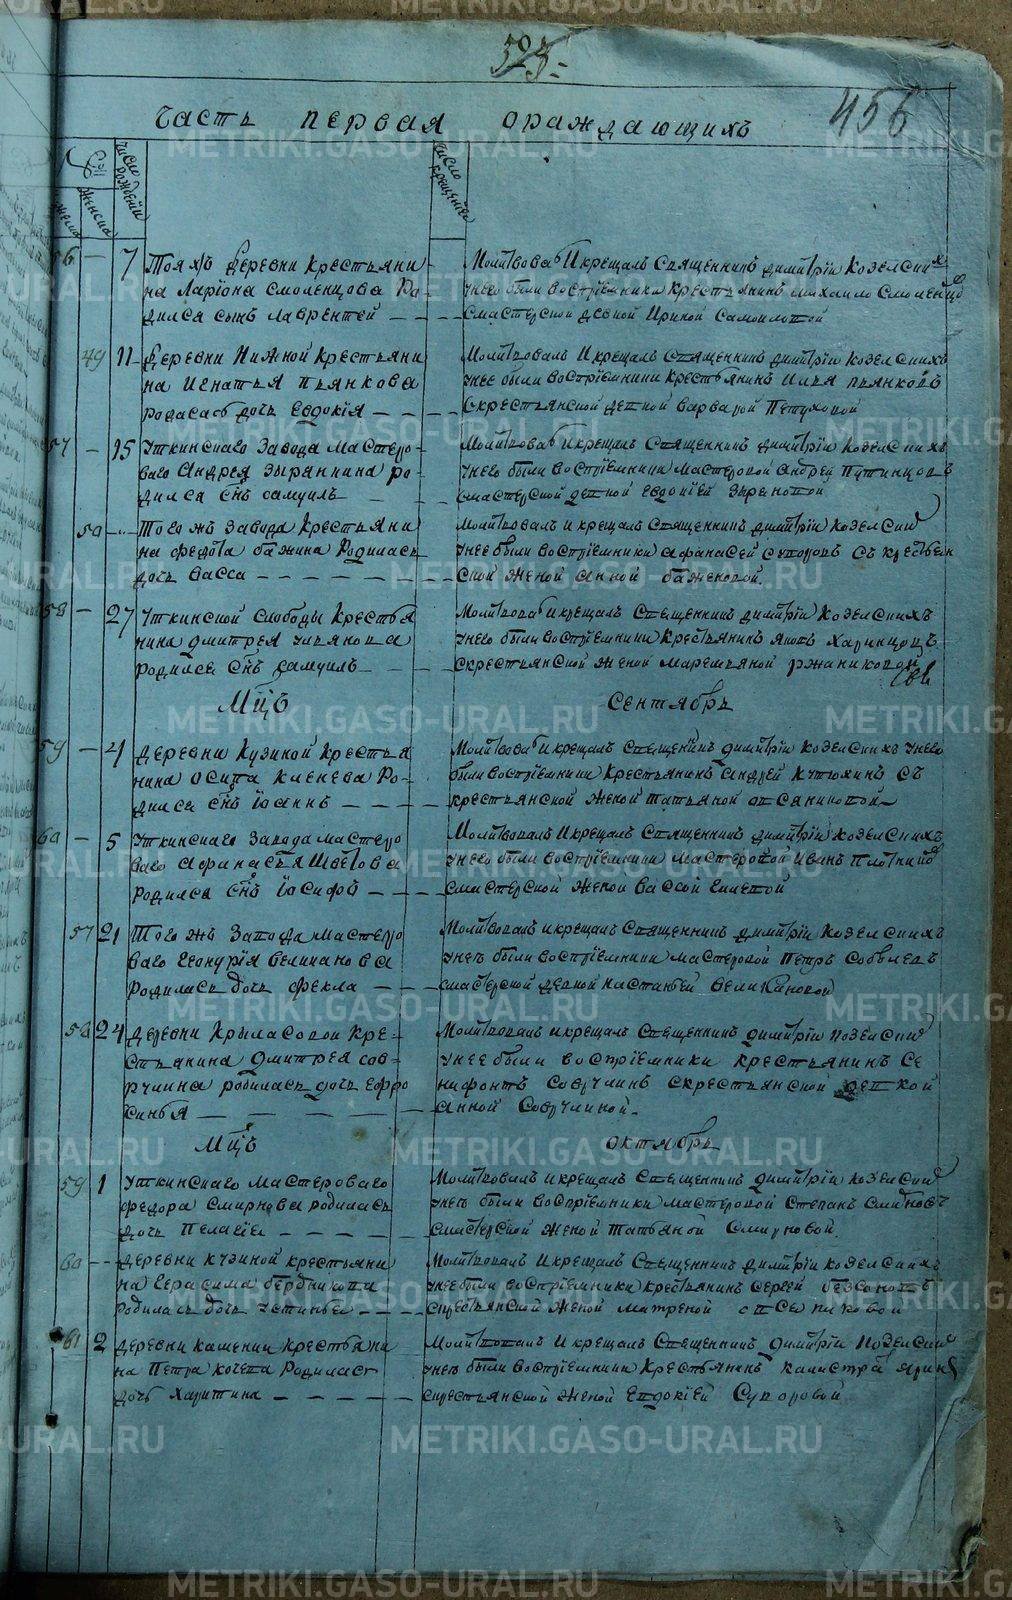 523
456
часть первая ораждающихъ
число рождении
женска
число крещение
56 — 7 Тояжъ деревни крестьяни
на Ларіона Смоленцова Ро
дился сынъ Лаврентей
Молитвовалъ И крещалъ Священникъ Димитріи Козелскихъ
унего были воспріемники крестьянинъ михаило Смоленцо
смастерской девкой Ириной Самоиловой
49 11 Деревни Нижной крестьяни
на Игнатья пьянкова
родилась дочь Евдокія
Молитвовалъ И крещалъ Священникъ Димитріи Козелскихъ
унее были воспріемники крестьянинъ Илья пьянковъ
Скрестьянской девкой варварой Петуховой
57 — 15 Уткинскаго Завода мастеро
ваго Андрея Зырянкина ро
дился снъ самуилъ
Молитвовалъ И крещалъ Священникъ Димитріи Козелскихъ
унего были воспріемники мастеровой Андрей Путинцовъ
смастерской девкой Евдокіей
50 Того жъ Завода Крестьяни
на федота бажина Родилась
дочь васса
Молитвовалъ и крещалъ Священникъ Димитріи Козелски
унее были воспріемники афанасей суворовъ съ крестьян
ской женой анной баженовой.
58 — 27 Уткинской Слободы Кресть
нина дмитрея ульянова
родился снъ Самуилъ
Молитвовалъ И крещалъ Священникъ Димитріи Козелскихъ
унего были воспріемники Крестьянинъ яковъ Харинцовъ
скрестьянской женой маремьяной ржаниковой
Мцъ Сентябрь
59 — 4 деревни Кузиной Крестья
нина осипа Кленева Ро
дился снъ Іоаннъ
Молитвовалъ И крещалъ Священникъ Димитріи Козелскихъ унего
были воспріемники Крестьянинъ Андрей Кутюхинъ съ
крестьянской женой татьяной овсяниковой
60 — 5 Уткинскаго Завода мастеро
ваго афанасья Шветова
родился снъ Іосифъ
Молитвовалъ И крещалъ Священникъ Димитріи Козелскихъ
унего были воспріемники мастеровой иванъ Плотников
смастерской женой вассой
57 21 Того жъ Завода мастеро
ваго великанова
родилась дочь фекла
Молитвовалъ и крещалъ Священникъ Димитріи Козелскихъ
унее были воспріемники мастеровой Петръ Соболевъ
смастерской девкой настасьей великановой
58 24 деревни Крыласовой Кре
стьянина дмитрея сов
рулина родилась дочь Ефро
синья
Молитвовалъ и крещалъ Священникъ Димитріи Козелски
унее были воспріемники крестьянинъ Се
нифонтъ Соврулинъ скрестьянской девкой
анной Соврулиной.
Мцъ октябрь
59 1 Уткинскаго мастероваго
федора Смирнова родилась
дочь Пелагіея
Молитвовалъ и крещалъ Священникъ Димитріи Козелски
унего были воспріемники мастеровой Степанъ
смастерской женой татьяной Смирновой
60 деревни кузиной крестьяни
на Герасима бердникова
родилась дочь устинья
Молитвовалъ И крещалъ Священникъ Димитріи Козелскихъ
унее были воспріемники крестьянинъ Сергей безсоновъ
скрестьянской женой матреной овсениковой
61 2 деревни каменки крестьяни
на Петра кочева Родилась
дочь Харитина
Молитвовалъ И крещалъ Священникъ Димитріи Козелски
унего были воспріемники Крестьянинъ калистра
скрестьянской женой Евдокіей Суворовой
METRIKI.GASO-URAL.RU